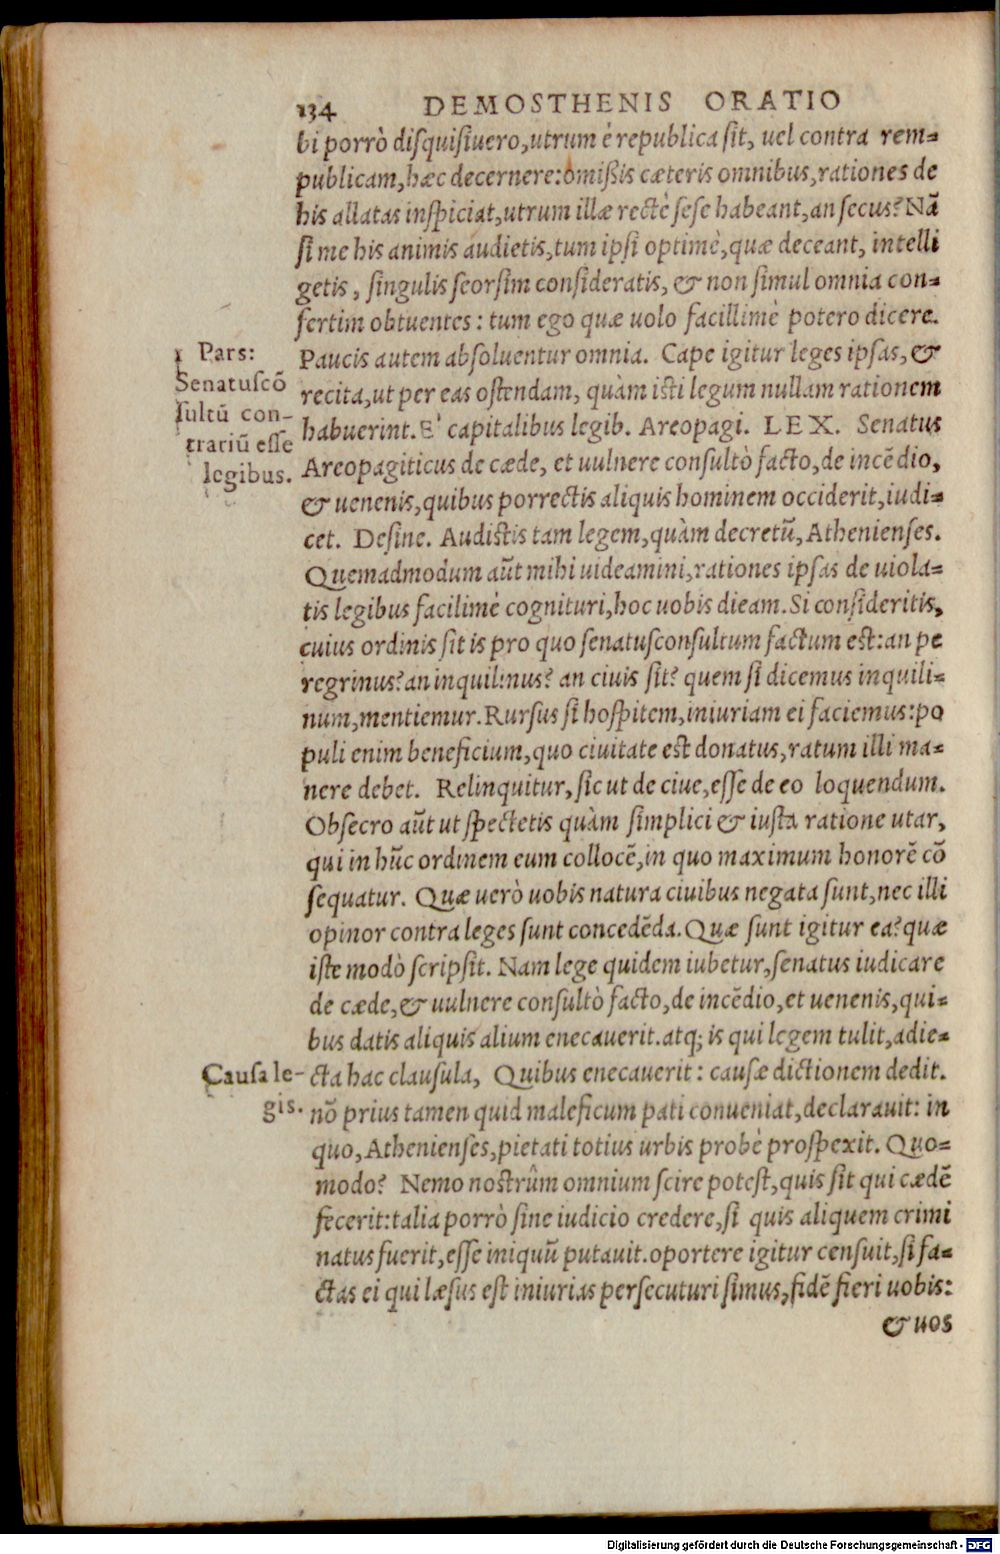 134 DEMOSTHENIS ORATIO
bi porrò disquisiuero, utrum è republica sit, uel contra rem=
publicam, hæc decernere: omißis cæteris omnibus, rationes de
his allatas inspiciat, utrum illæ rectè sese habeant, an secus? Nã
si me his animis audietis, tum ipsi optimè, quæ deceant, intelli
getis, singulis seorsim consideratis, & non simul omnia con=
fertim obtuentes: tum ego quæ uolo facillimè potero dicere.
1 Pars:
Senatuscō
sultũ con-
trariũ esse
legibus.
Paucis autem absoluentur omnia. Cape igitur leges ipsas, &
recita, ut per eas ostendam, quàm isti legum nullam rationem
habuerint. E' capitalibus legib. Areopagi. LEX. Senatus
Areopagiticus de cæde, et uulnere consultò facto, de incẽdio,
& uenenis, quibus porrectis aliquis hominem occiderit, iudi=
cet. Desine. Audistis tam legem, quàm decretũ, Athenienses.
Quemadmodum aũt mihi uideamini, rationes ipsas de uiola=
tis legibus facilimè cognituri, hoc uobis dicam. Si consideritis,
cuius ordinis sit is pro quo senatusconsultum factum est: an pe
regrinus? an inquilinus? an ciuis sit? quem si dicemus inquili=
num, mentiemur. Rursus si hospitem, iniuriam ei faciemus: po
puli enim beneficium, quo ciuitate est donatus, ratum illi ma=
nere debet. Relinquitur, sic ut de ciue, esse de eo loquendum.
Obsecro aũt ut spectetis quàm simplici & iusta ratione utar,
qui in hũc ordinem eum collocẽ, in quo maximum honorẽ cō
sequatur. Quæ uerò uobis natura ciuibus negata sunt, nec illi
opinor contra leges sunt concedẽda. Quæ sunt igitur ea? quæ
iste modò scripsit. Nam lege quidem iubetur, senatus iudicare
de cæde, & uulnere consultò facto, de incẽdio, et uenenis, qui=
bus datis aliquis alium enecauerit. atq; is qui legem tulit, adie=
Causa le-
gis.
cta hac clausula, Quibus enecauerit: causæ dictionem dedit.
nō prius tamen quid maleficum pati conueniat, declarauit: in
quo, Athenienses, pietati totius urbis probè prospexit. Quo=
modo? Nemo nostrûm omnium scire potest, quis sit qui cædẽ
fecerit: talia porrò sine iudicio credere, si quis aliquem crimi
natus fuerit, esse iniquũ putauit. oportere igitur censuit, si fa=
ctas ei qui læsus est iniurias persecuturi simus, fidẽ fieri uobis:
& uos
Digitalisierung gefördert durch die Deutsche Forschungsgemeinschaft - DFG